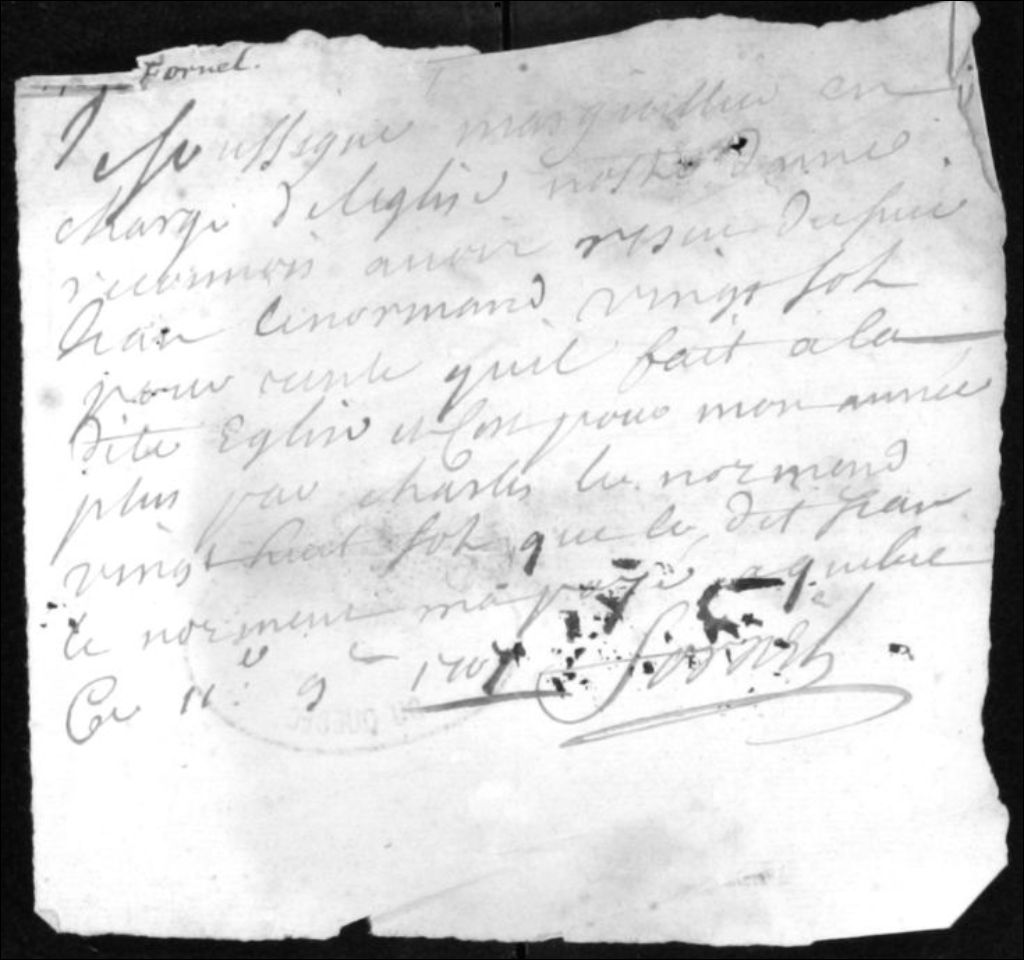 Fornel.
Je soussigne marguillier en
charge de leglise nostre dame
reconnois auoir resu du sieur
Jean lenormand vingt sols
pour rente quil fait a la
dite Eglise et Cest pour mon année
plus par charles le normend
vingt huit sols que le dit Jean
le norment ma payé a quebec
Ce 11e 9 1707 Fornel
DU QUEBEC